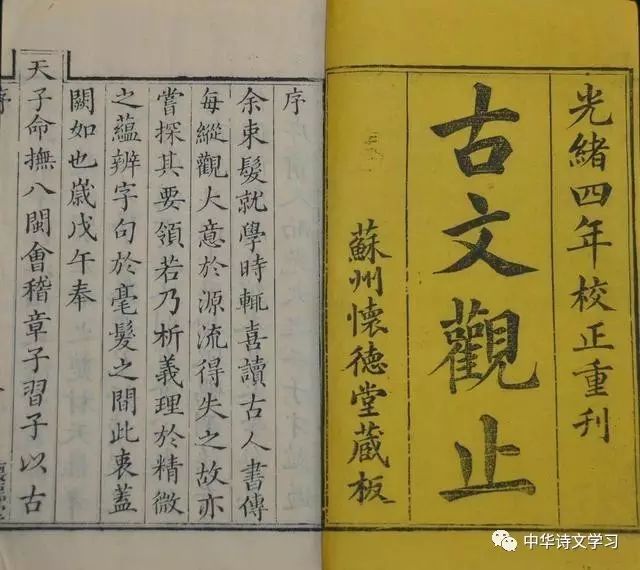 光緒四年校正重刊
古文觀止
蘇州懷德堂藏板
序
余束髮就學時輒喜讀古人書傳
每縱觀大意於源流得失之故亦
嘗探其要領若乃析義理於精微
之蘊辨字句於毫髮之間此衷蓋
闕如也歲戊午奉
天子命撫八閩會稽章子習子以古
中华诗文学习